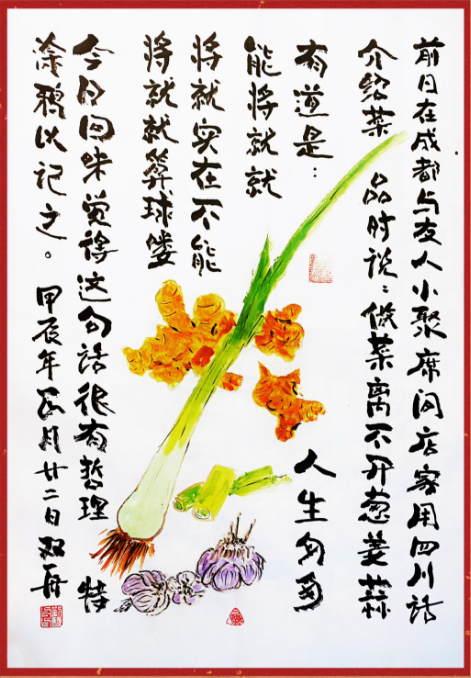 前日在成都与友人小聚席间店家用四川话
介绍菜品时说：做菜离不开葱姜蒜
有道是：人生匆匆
能将就就
将就实在不能
将就就算球喽
今日回味觉得这句话很有哲理 特
涂鸦以记之。甲辰年正月廿二日双舟